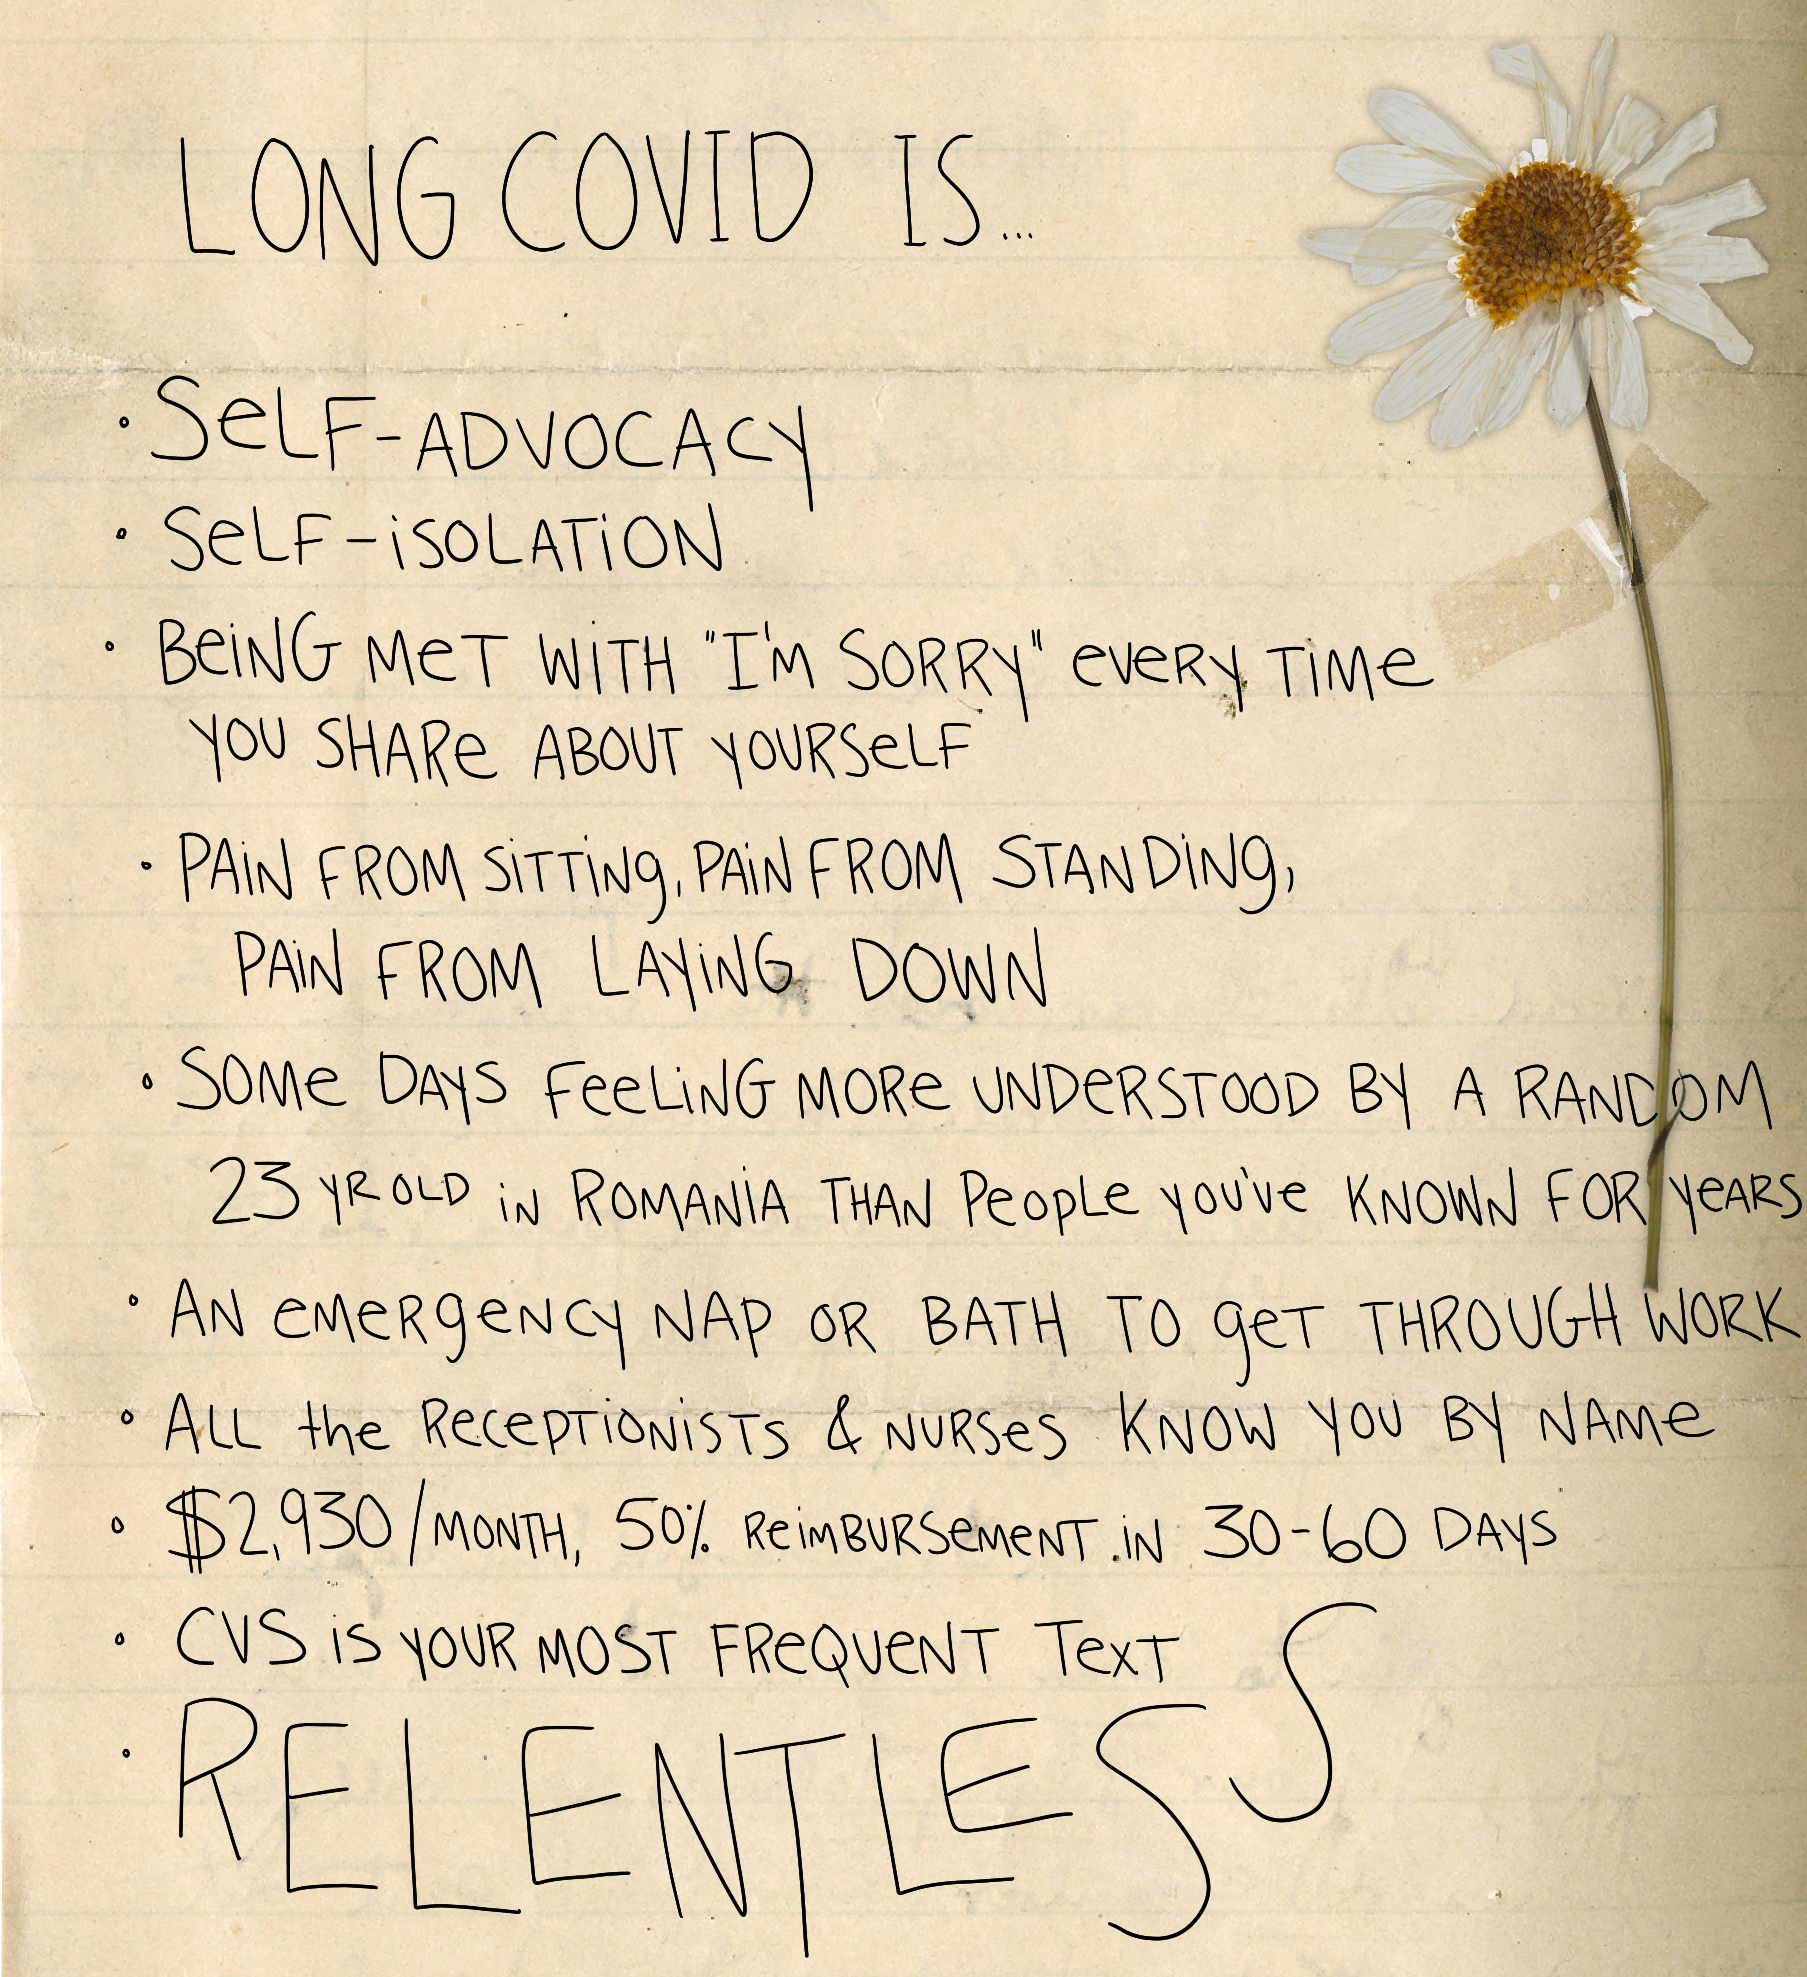 LONG COVID IS...
• SeLF-ADVOCACY
• SeLF-iSOLATiON
• BeiNG MeT WiTH "I'M SORRY" eveRY TiMe
YOU SHARe ABOUT YOURSeLF
• PAiN FROM SiTTiNg, PAiN FROM STANDiNg,
PAiN FROM LAYiNG DOWN
• SOMe DAYS FeeLiNG MORe UNDeRSTOOD BY A RANDOM
23 YR OLD iN ROMANiA THAN PeopLe you've KNOWN FOR YeARS
• AN eMeRgeNCY NAP OR BATH TO geT THROUGH WORK
• ALL the ReCePTiONiSTS & NURSeS KNOW YOU BY NAMe
• $2,930/MONTH, 50% ReiMBURSeMeNT iN 30-60 DAYS
• CVS iS YOUR MOST FReQUeNT TexT
• RELENTLESS